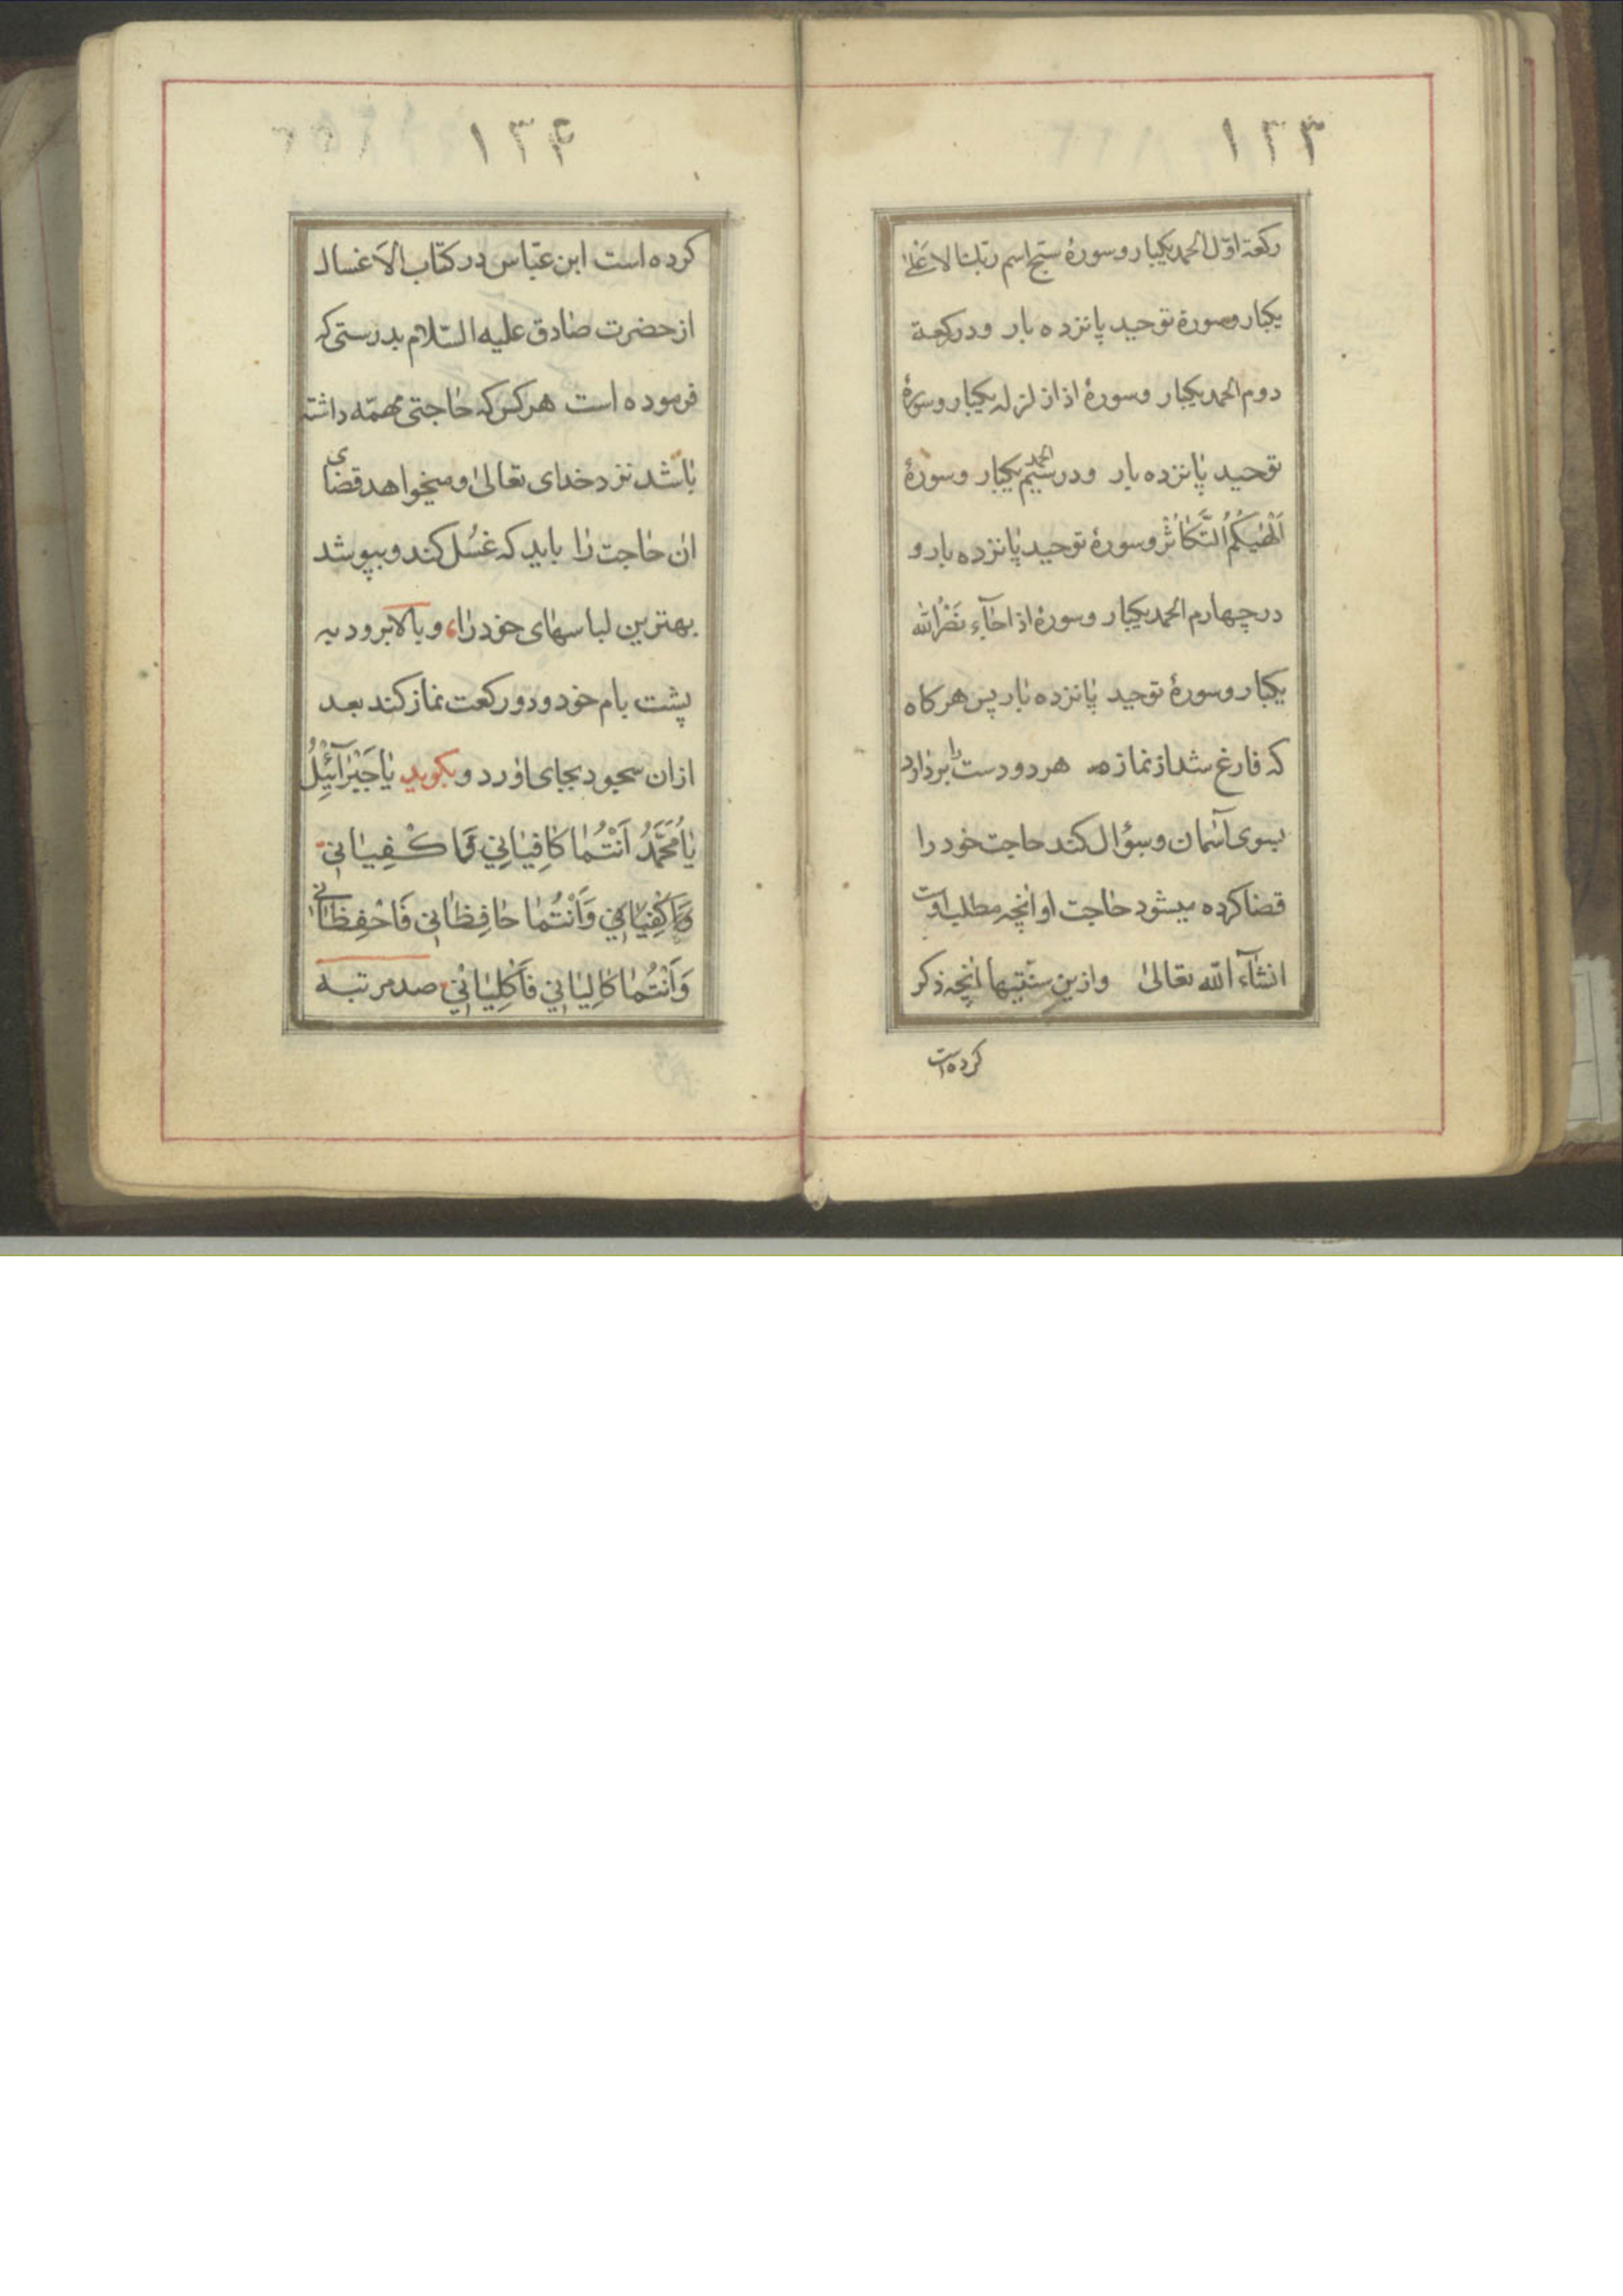 ۱۳۳
رکعة اوّل الحمد یکبار و سورهٔ سبّح اسم ربّک الاعلی
یکبار و سورة توحید پانزده بار و در رکعة
دوم الحمد یکبار و سورهٔ اذا زلزله یکبار و سورهٔ
توحید پانزده بار و در سیّم الحمد یکبار و سورهٔ
اَلْهٰیکُمُ التَّکاثُرْ و سورهٔ توحید پانزده بار و
در چهارم الحمد یکبار و سورهٔ اذا جآء نَصْرُ الله
یکبار و سورهٔ توحید پانزده بار پس هر کاه
که فارغ شد از نماز هر دو دست را بردارد
بسوی آسمان و سؤال کند حاجت خود را
قضا کرده میشود حاجت او انچه مطلب اوست
انشآء الله تعالیٰ و ازین سنّتیها انچه ذکر
کرده است
۱۳۴
کرده است ابن عبّاس در کتاب الاغسال
از حضرت صادق علیه السّلام بدرستی که
فرموده است هر کس که حاجتی مهمّه داشته
باشد نزد خدای تعالیٰ و میخواهد قضای
ان حاجت را باید که غسُل کند و بپوشد
بهترین لباسهای خود را، و بالا برود به
پشت بام خود و دو رکعت نماز کند بعد
ازان سجود بجای اورد و بکوید یا جَبْرَآئیِلُ
یا مُحَمَّدُ اَنْتُما کافِیانِي فَاکْفِیانی
وَاَکْفِیانی وَاَنْتُما حافِظانی فَاحْفِظانی
وَاَنْتُما کالِیانی فَاکْلِیانی صد مرتبه